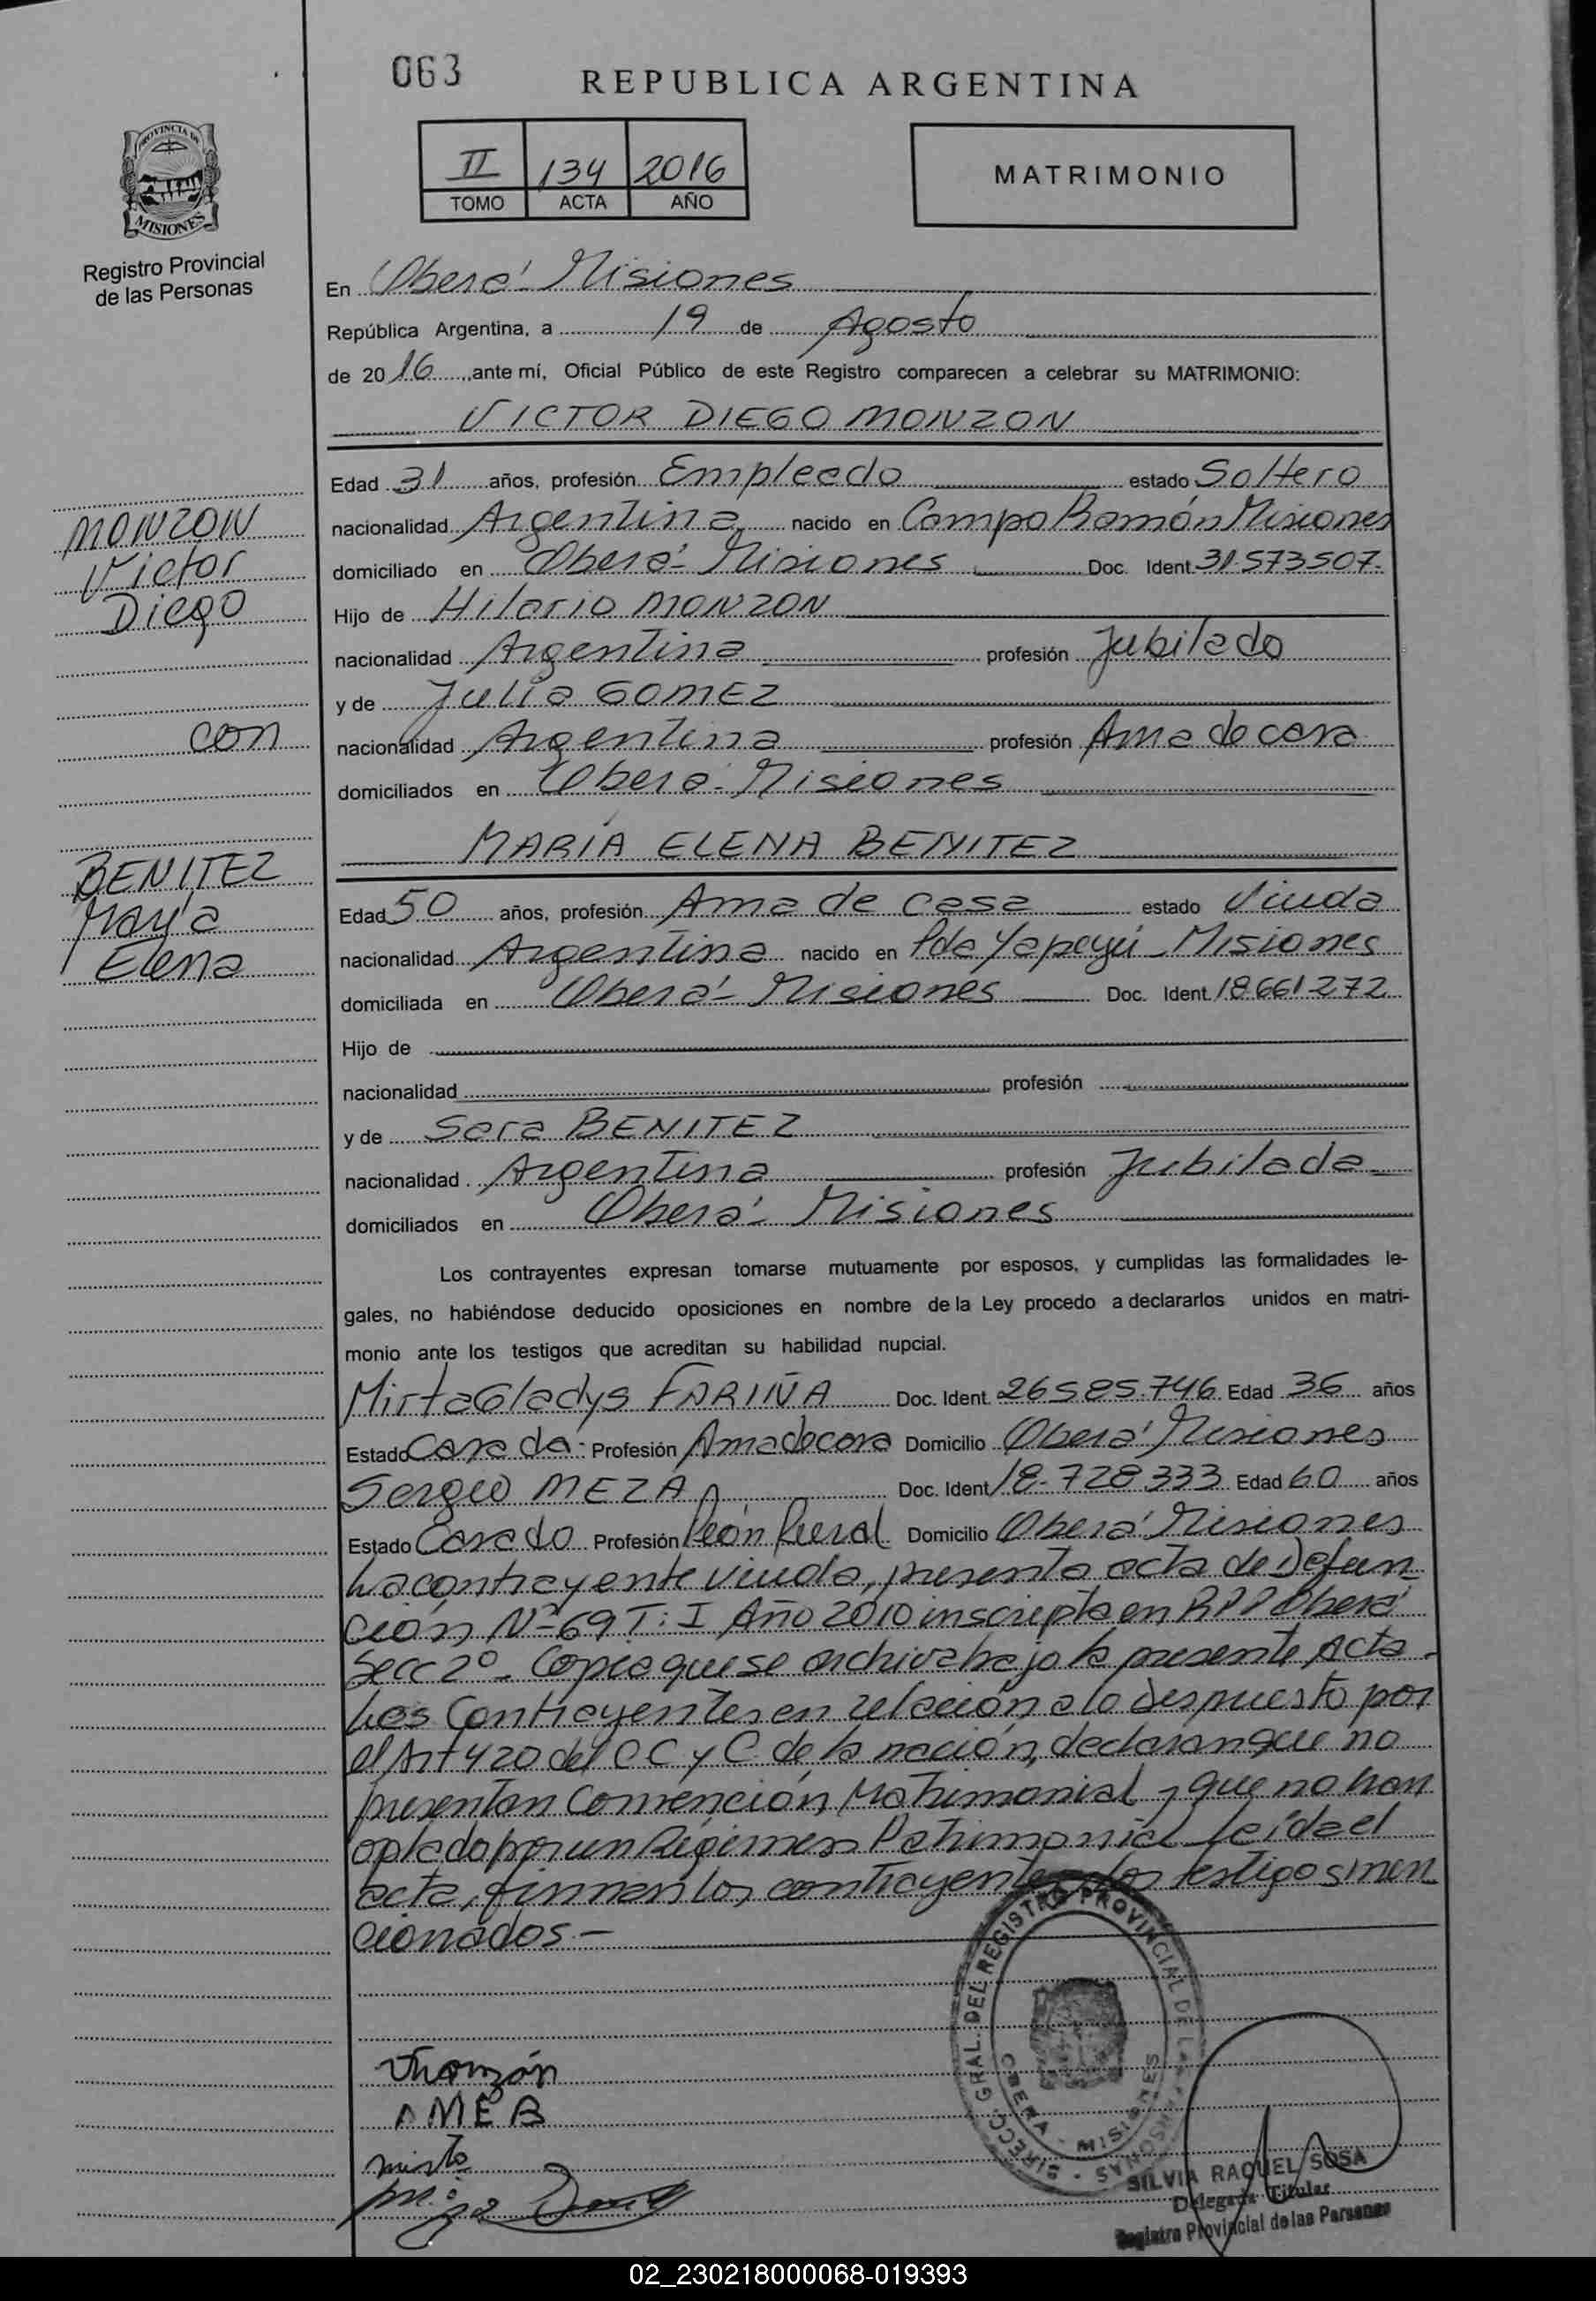 063
REPUBLICA ARGENTINA
PROVINCIA DE
MISIONES
Registro Provincial
de las Personas
II 134 2016
TOMO ACTA AÑO
MATRIMONIO
En Oberá - Misiones
República Argentina, a 19 de Agosto
de 2016, ante mí, Oficial Público de este Registro comparecen a celebrar su MATRIMONIO:
VICTOR DIEGO MONZON
Edad 31 años, profesión Empleado estado Soltero
nacionalidad Argentina nacido en Campo Ramón Misiones
domiciliado en Oberá - Misiones Doc. Ident. 31.573507.
Hijo de Hilario MONZON
nacionalidad Argentina profesión Jubilado
y de Julia GOMEZ
nacionalidad Argentina profesión Ama de casa
domiciliados en Oberá - Misiones
MONZON
Victor
Diego
con
BENITEZ
María
Elena
MARÍA ELENA BENITEZ
Edad 50 años, profesión Ama de casa estado Viuda
nacionalidad Argentina nacido en Pda Yapeyú - Misiones
domiciliada en Oberá - Misiones Doc. Ident. 18661272
Hijo de
nacionalidad profesión
y de Sara BENITEZ
nacionalidad Argentina profesión Jubilada
domiciliados en Oberá - Misiones
Los contrayentes expresan tomarse mutuamente por esposos, y cumplidas las formalidades le-
gales, no habiéndose deducido oposiciones en nombre de la Ley procedo a declararlos unidos en matri-
monio ante los testigos que acreditan su habilidad nupcial.
Mirta Gladys FARIÑA Doc. Ident. 26585.746 Edad 36 años
Estado Casada - Profesión Ama de casa Domicilio Oberá Misiones
Sergio MEZA Doc. Ident 18.728333 Edad 60 años
Estado Casado Profesión Peón Rural Domicilio Oberá Misiones
La contrayente viuda, presenta acta de Defun-
ción Nº 69 T: I Año 2010 inscripta en RPP Oberá
Secc 2º - Copia que se archiva bajo la presente Acta.
Los Contrayentes en relación a lo dispuesto por
el Art 420 del CC y C. de la nación, declaran que no
presentan Convención Matrimonial y que no han
optado por un Régimen Patrimonial leída el
acta, firman los contrayentes los testigos men
cionados -
VMonzón
MEB
mirta
DIRECC. GRAL. DEL REGISTRO PROVINCIAL DE LAS PERSONAS
OBERA - MISIONES
SILVIA RAQUEL SOSA
Delegada Titular
Registro Provincial de las Personas
02_230218000068-019393